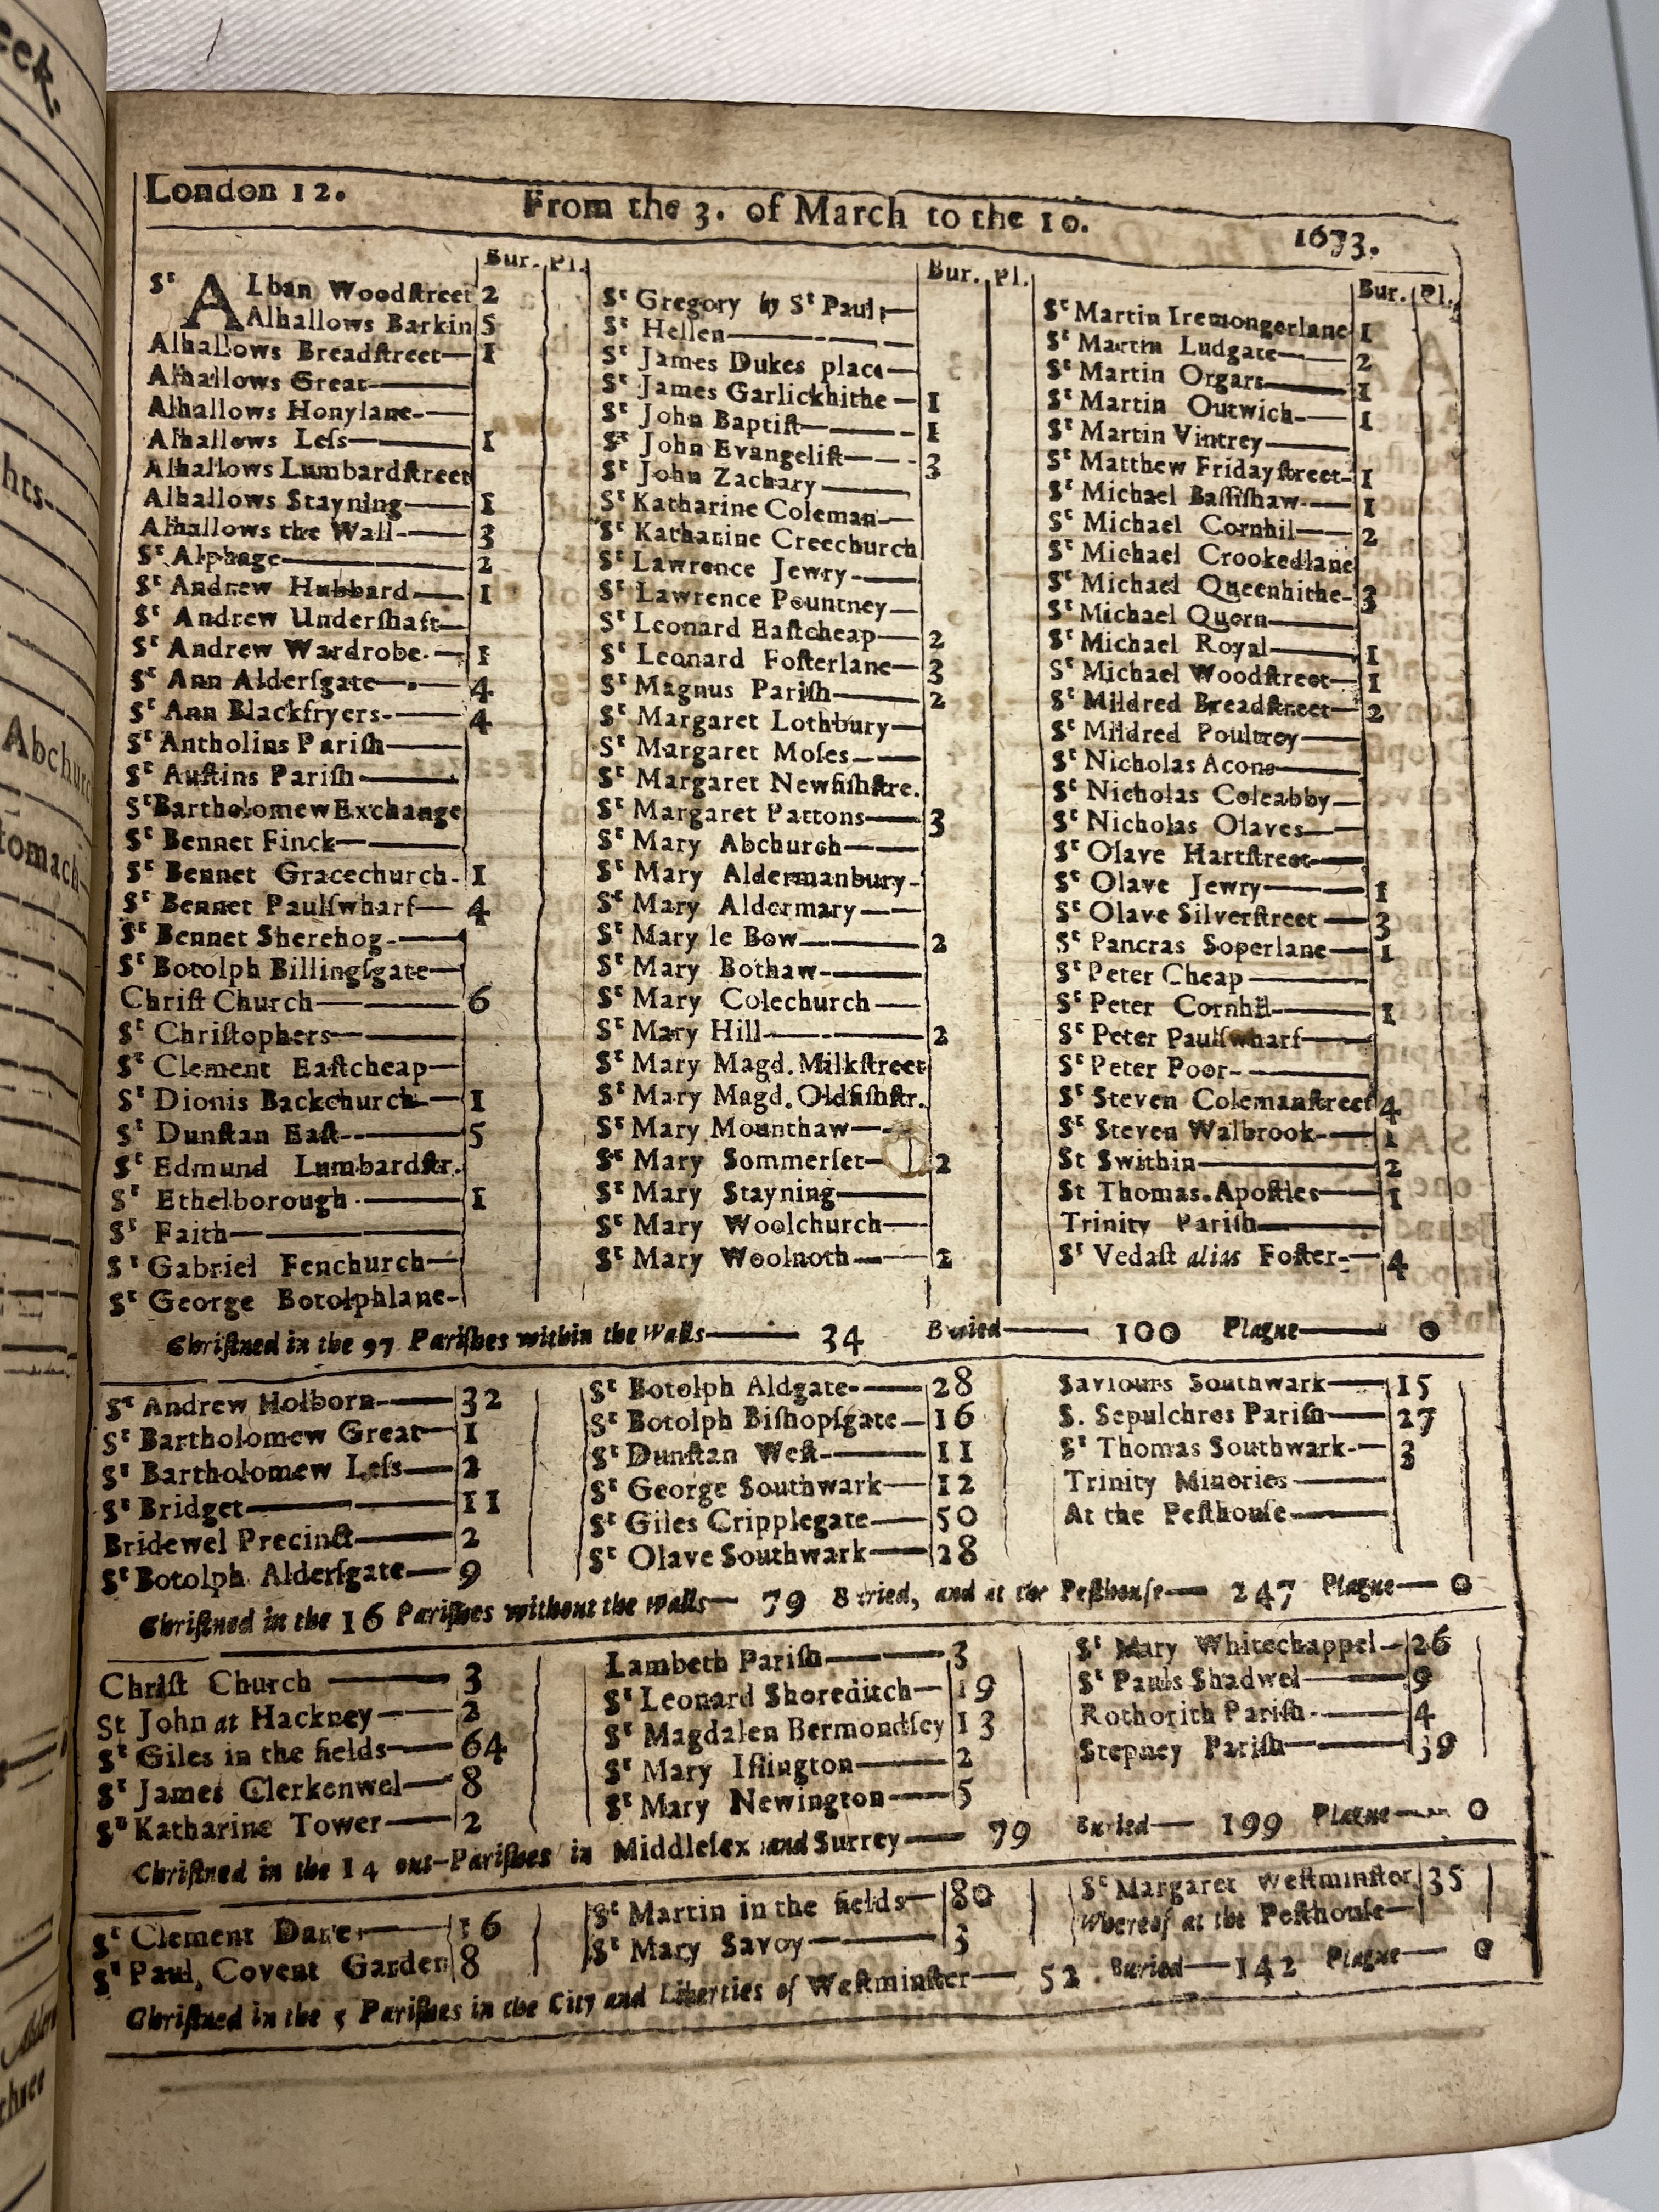 eek.
hts-
Abchurc
tomach-
London 12. From the 3. of March to the 10. 1673.
Bur. Pl.
Sᵗ ALban Woodſtreet 2
Alhallows Barkin 5
Alhallows Breadſtreet— 1
Alhallows Great——
Alhallows Honylane-——
Alhallows Leſs—— 1
Alhallows Lumbardſtreet
Alhallows Stayning—— 1
Alhallows the Wall-—— 3
Sᵗ Alphage—— 2
Sᵗ Andrew Hubbard—— 1
Sᵗ Andrew Underſhaft—
Sᵗ Andrew Wardrobe-— 1
Sᵗ Ann Alderſgate—— 4
Sᵗ Ann Blackfryers-—— 4
Sᵗ Antholins Pariſh——
Sᵗ Auſtins Pariſh——
Sᵗ Bartholomew Exchange
Sᵗ Bennet Finck——
Sᵗ Bennet Gracechurch- 1
Sᵗ Bennet Paulſwharf— 4
Sᵗ Bennet Sherehog-——
Sᵗ Botolph Billingſgate—
Chriſt Church—— 6
Sᵗ Chriſtophers——
Sᵗ Clement Eaſtcheap—
Sᵗ Dionis Backchurch— 1
Sᵗ Dunſtan Eaſt-—— 5
Sᵗ Edmund Lumbardſtr.
Sᵗ Ethelborough—— 1
Sᵗ Faith——
Sᵗ Gabriel Fenchurch—
Sᵗ George Botolphlane-
Bur. Pl.
Sᵗ Gregory by Sᵗ Paul;—
Sᵗ Hellen——
Sᵗ James Dukes place—
Sᵗ James Garlickhithe— 1
Sᵗ John Baptiſt—— 1
Sᵗ John Evangeliſt—— 3
Sᵗ John Zachary——
Sᵗ Katharine Coleman—
Sᵗ Katharine Creechurch
Sᵗ Lawrence Jewry-——
Sᵗ Lawrence Pountney—
Sᵗ Leonard Eaſtcheap— 2
Sᵗ Leonard Foſterlane— 3
Sᵗ Magnus Pariſh—— 2
Sᵗ Margaret Lothbury—
Sᵗ Margaret Moſes——
Sᵗ Margaret Newfiſhſtre.
Sᵗ Margaret Pattons—— 3
Sᵗ Mary Abchurch——
Sᵗ Mary Aldermanbury-
Sᵗ Mary Aldermary——
Sᵗ Mary le Bow—— 2
Sᵗ Mary Bothaw-——
Sᵗ Mary Colechurch——
Sᵗ Mary Hill—— 2
Sᵗ Mary Magd. Milkſtreet
Sᵗ Mary Magd. Oldfiſhſtr.
Sᵗ Mary Mounthaw——
Sᵗ Mary Sommerſet— 2
Sᵗ Mary Stayning——
Sᵗ Mary Woolchurch——
Sᵗ Mary Woolnoth—— 2
Bur. Pl.
Sᵗ Martin Iremongerlane 1
Sᵗ Martin Ludgate—— 2
Sᵗ Martin Orgars—— 1
Sᵗ Martin Outwich-—— 1
Sᵗ Martin Vintrey——
Sᵗ Matthew Fridayſtreet- 1
Sᵗ Michael Baſſiſhaw-— 1
Sᵗ Michael Cornhil—— 2
Sᵗ Michael Crookedlane
Sᵗ Michael Queenhithe- 3
Sᵗ Michael Quern——
Sᵗ Michael Royal—— 1
Sᵗ Michael Woodſtreet— 1
Sᵗ Mildred Breadſtreet— 2
Sᵗ Mildred Poultrey——
Sᵗ Nicholas Acons——
Sᵗ Nicholas Coleabby—
Sᵗ Nicholas Olaves——
Sᵗ Olave Hartſtreet——
Sᵗ Olave Jewry—— 1
Sᵗ Olave Silverſtreet— 3
Sᵗ Pancras Soperlane— 1
Sᵗ Peter Cheap——
Sᵗ Peter Cornhil—— 1
Sᵗ Peter Paulſwharf——
Sᵗ Peter Poor-——
Sᵗ Steven Colemanſtreet 4
Sᵗ Steven Walbrook-— 1
St Swithin—— 2
St Thomas Apoſtles—— 1
Trinity Pariſh——
Sᵗ Vedaſt alias Foſter-— 4
Chriſtned in the 97 Pariſhes within the Walls—— 34 Buried—— 100 Plague—— 0
Sᵗ Andrew Holborn-—— 32
Sᵗ Bartholomew Great— 1
Sᵗ Bartholomew Leſs— 2
Sᵗ Bridget—— 11
Bridewel Precinct—— 2
Sᵗ Botolph Alderſgate— 9
Sᵗ Botolph Aldgate-—— 28
Sᵗ Botolph Biſhopſgate— 16
Sᵗ Dunſtan Weſt-—— 11
Sᵗ George Southwark— 12
Sᵗ Giles Cripplegate—— 50
Sᵗ Olave Southwark—— 28
Saviours Southwark—— 15
S. Sepulchres Pariſh—— 27
Sᵗ Thomas Southwark-— 3
Trinity Minories——
At the Peſthouſe——
Chriſtned in the 16 Pariſhes without the Walls— 79 Buried, and at the Peſthouſe— 247 Plague— 0
Chriſt Church —— 3
St John at Hackney—— 2
Sᵗ Giles in the fields—— 64
Sᵗ James Clerkenwel—— 8
Sᵗ Katharine Tower—— 2
Lambeth Pariſh—— 3
Sᵗ Leonard Shoreditch— 19
Sᵗ Magdalen Bermondſey 13
Sᵗ Mary Iſlington—— 2
Sᵗ Mary Newington—— 5
Sᵗ Mary Whitechappel— 26
Sᵗ Pauls Shadwel—— 9
Rothorith Pariſh-—— 4
Stepney Pariſh—— 39
Chriſtned in the 14 out-Pariſhes in Middleſex and Surrey—— 79 Buried— 199 Plague—— 0
Sᵗ Clement Danes—— 16
Sᵗ Paul, Covent Garden 8
Sᵗ Martin in the fields— 80
Sᵗ Mary Savoy—— 3
Sᵗ Margaret Weſtminſter 35
Whereof at the Peſthouſe—
Chriſtned in the 5 Pariſhes in the City and Liberties of Weſtminſter— 52. Buried— 142 Plague— 0